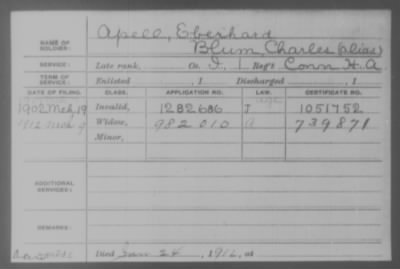 Apell, Eberhard
NAME OF SOLDIER: Blum, Charles (alias)
SERVICE: Late rank, Co. I, 1 Reg't Conn H. A.
TERM OF SERVICE: Enlisted , 1 Discharged , 1
DATE OF FILING. CLASS. APPLICATION NO. LAW. CERTIFICATE NO.
1902 Mch, 19 Invalid, 1282686 J 1051752
1912 Mch 9 Widow, 982 010 739871
Minor,
ADDITIONAL SERVICES:
REMARKS:
Died Jan 24, 1912, at